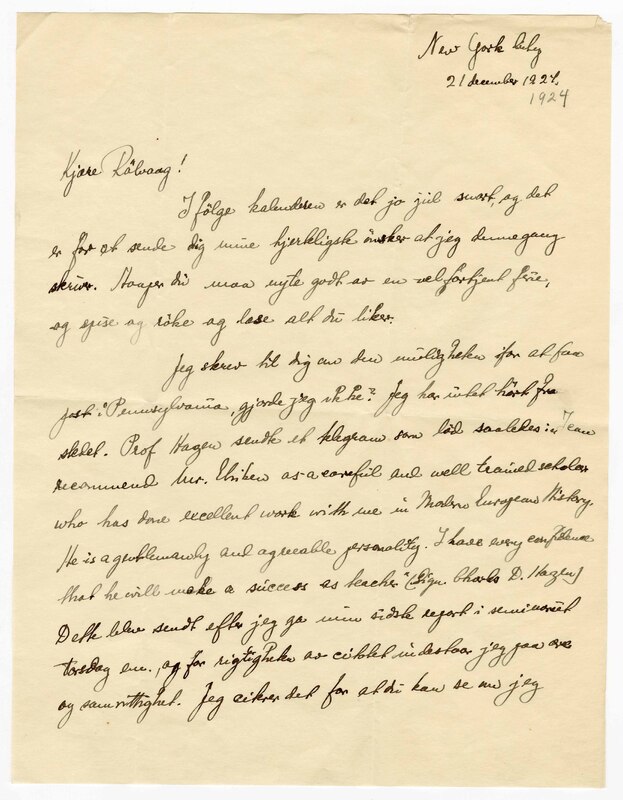 New York City
21 december 1924.
1924
Kjære Rölvaag!
Ifölge kalenderen er det jo jul snart, og det
er for at sende dig mine hjerkligste önsker at jeg dennegang
skriver. Haaper du maa nyte godt av en velfortjent ferie,
og spise og röke og læse alt du liker.
Jeg skrev til dig om den muligheten for at faa
post i Pennsylvania, gjorde jeg ikke? Jeg har intet hört fra
stedet. Prof Hazen sendte et telegram som löd saaledes: "I can
recommend Mr. as a careful and well trained scholar
who has done excellent work with me in Modern European History.
He is a gentlemanly and agreeable personality. I have every confidence
that he will make a success as teacher" (Sign. Charles D. Hazen)
Dette blev sendt efter jeg ga min sidste report i seminariet
torsdag em., og for rigtigheten av citatet indestaar jeg paa ære
og samvittighet. Jeg citerer det for at du kan se om jeg